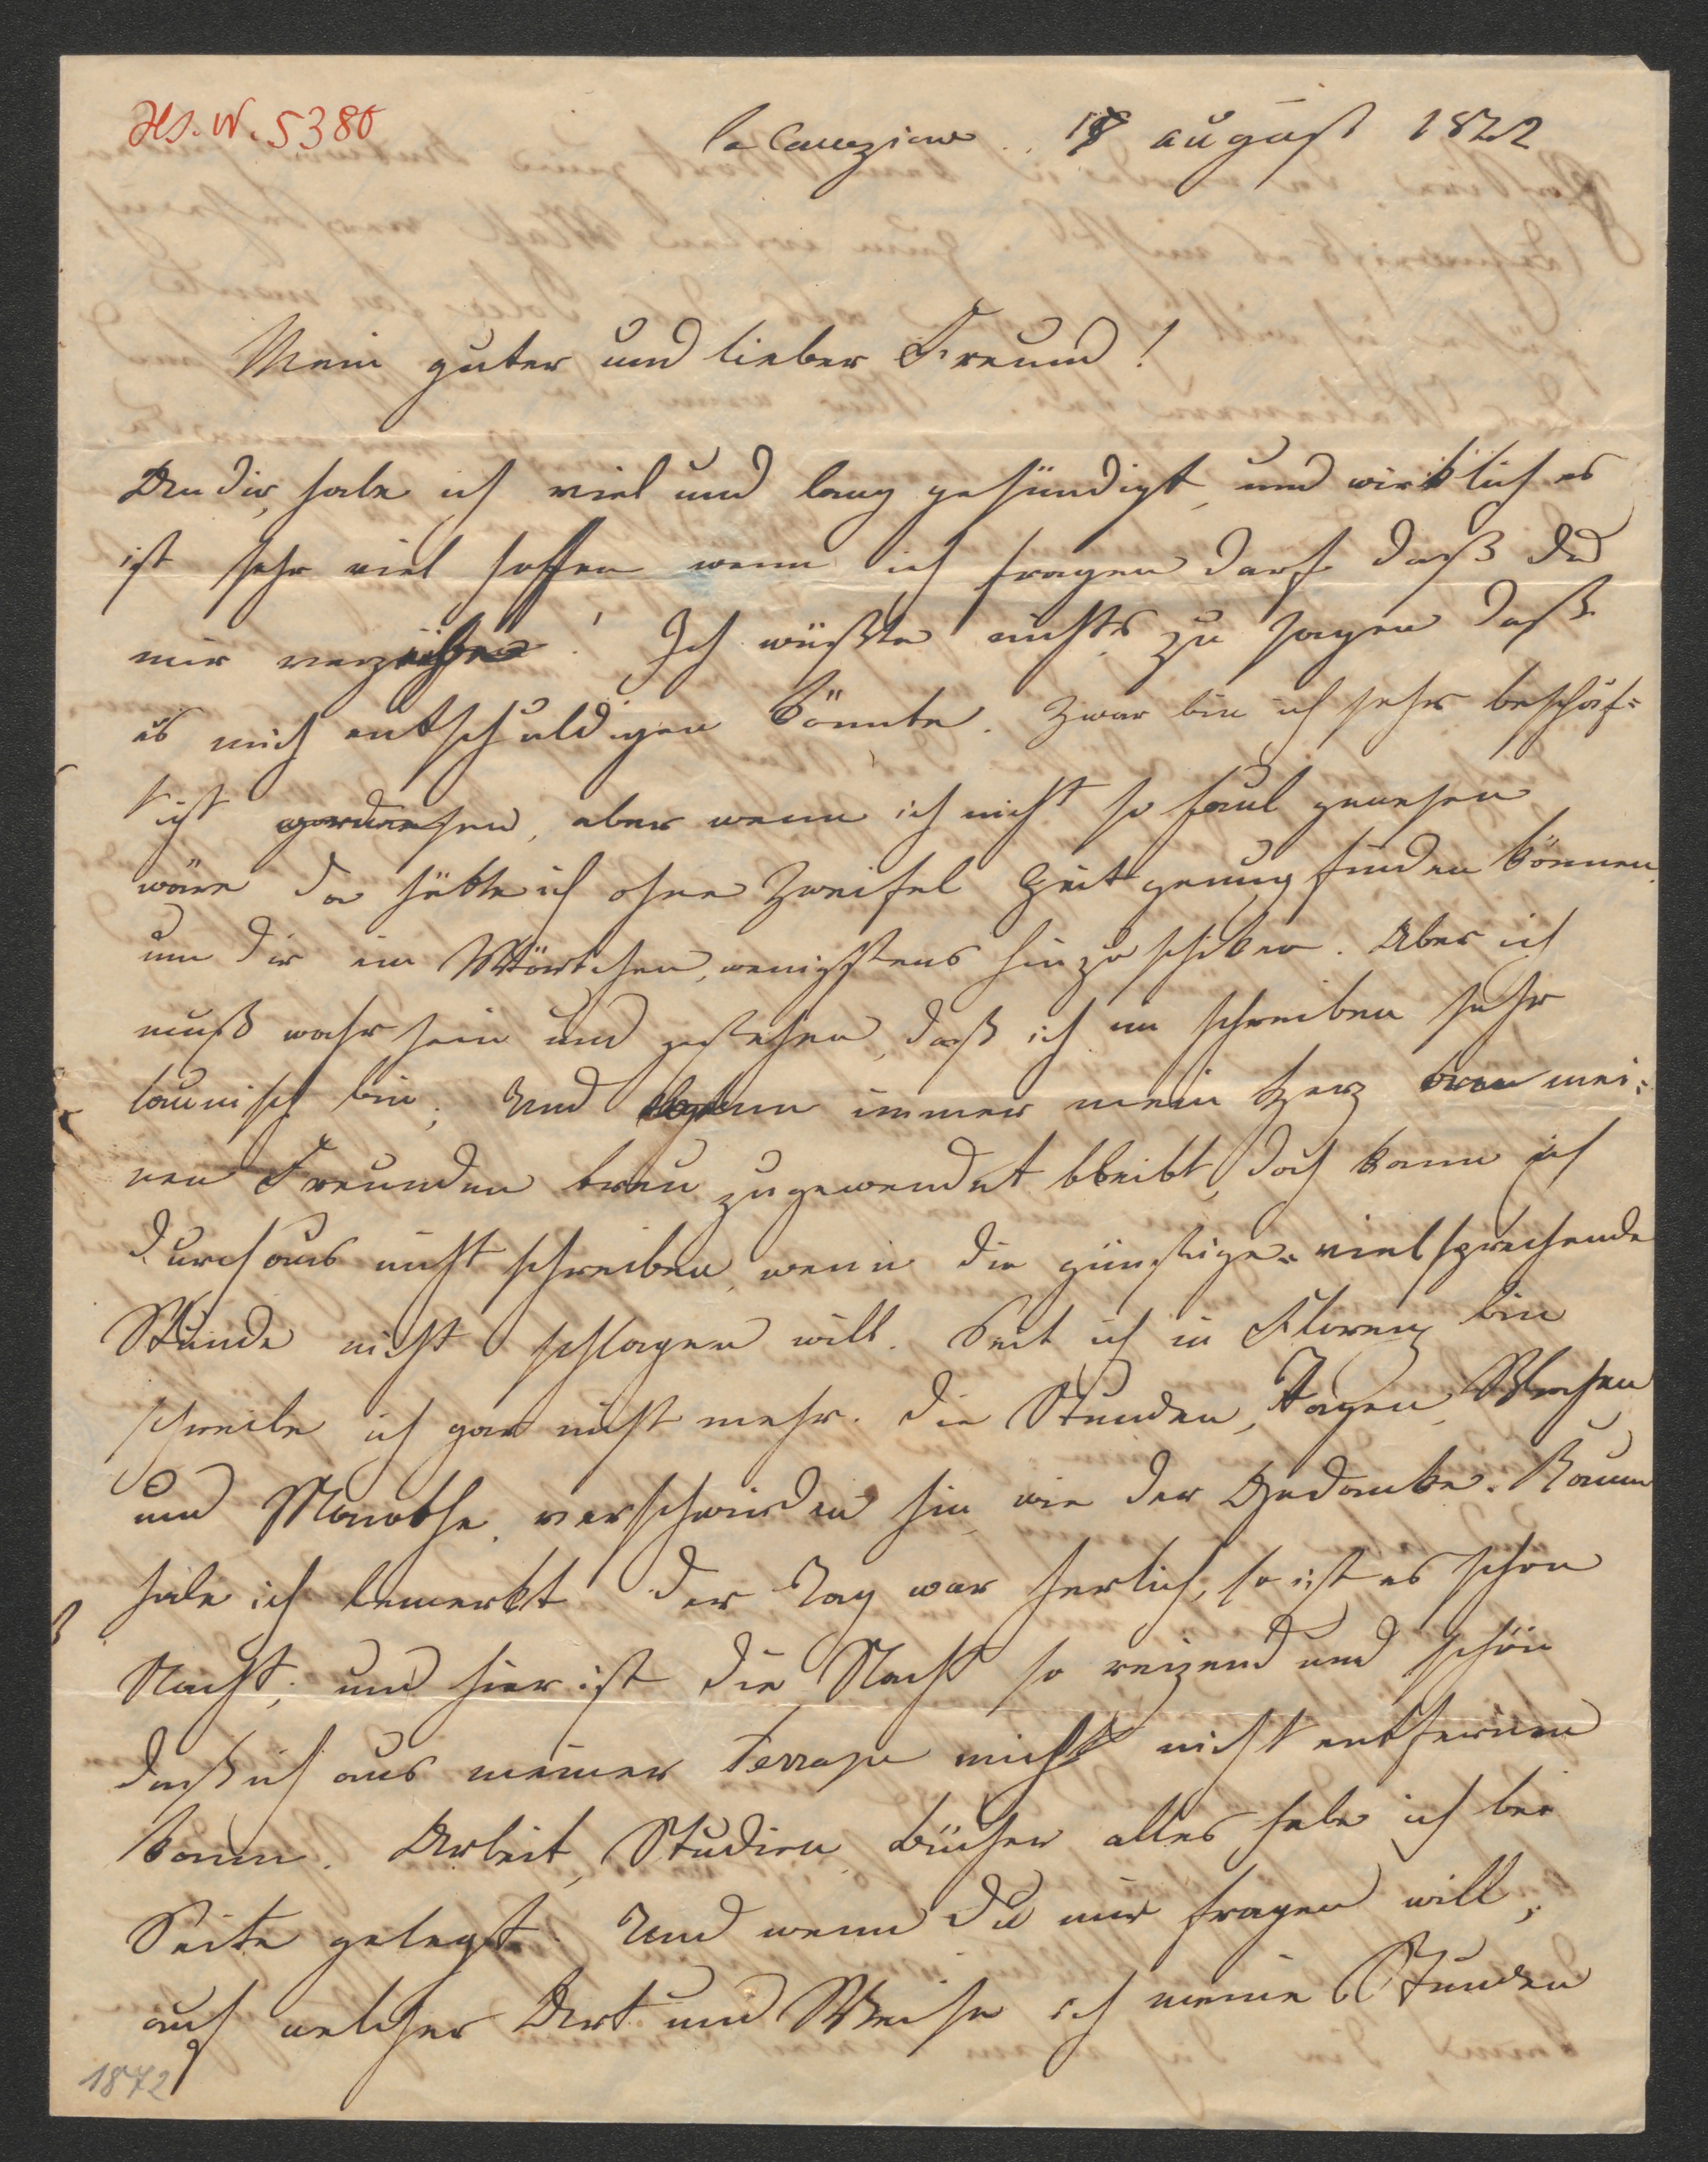 Hs. N. 5380
la Careggiana .. 18 august 1872
Mein guter und lieber Freund!
An dir, habe ich viel und lang gesündigt, und wirklich es
ist sehr viel hoffen wenn ich fragen darf daß du
mir verzeihe! Ich wüßte nichts zu sagen daß
es mich entschuldigen könnte. Zwar bin ich sehr beschäf=
tigt gewesen, aber wenn ich nicht so faul gewesen
wäre da hätte ich ohne Zweifel Zeit genung finden können
um dir ein Wörtchen, wenigstens hinzuschiken. Aber ich
muß wahr sein und gestehen, daß ich im schreiben sehr
launisch bin; Und wenn immer mein Herz mei=
nen Freunden treu zugewendet bleibt, doch kann ich
durchaus nicht schreiben, wenn die günstige= vielsprechende
Stunde nicht schlagen will. Seit ich in Florenz bin
schreibe ich gar nicht mehr. Die Stunden, Tagen, Wochen
und Monathe verschwinden hin, wie der Gedanke. Kaum
habe ich bemerkt der Tag war herlich, so ist es schon
Nacht; und hier ist die Nacht so reizend und schön
daß ich aus meiner Terrasse mich nicht entfernen
kann. Arbeit, Studien, bücher alles habe ich bei
Seite gelegt. Und wenn du mir fragen will,
auf welcher Art und Weise ich meine Stunden
1872